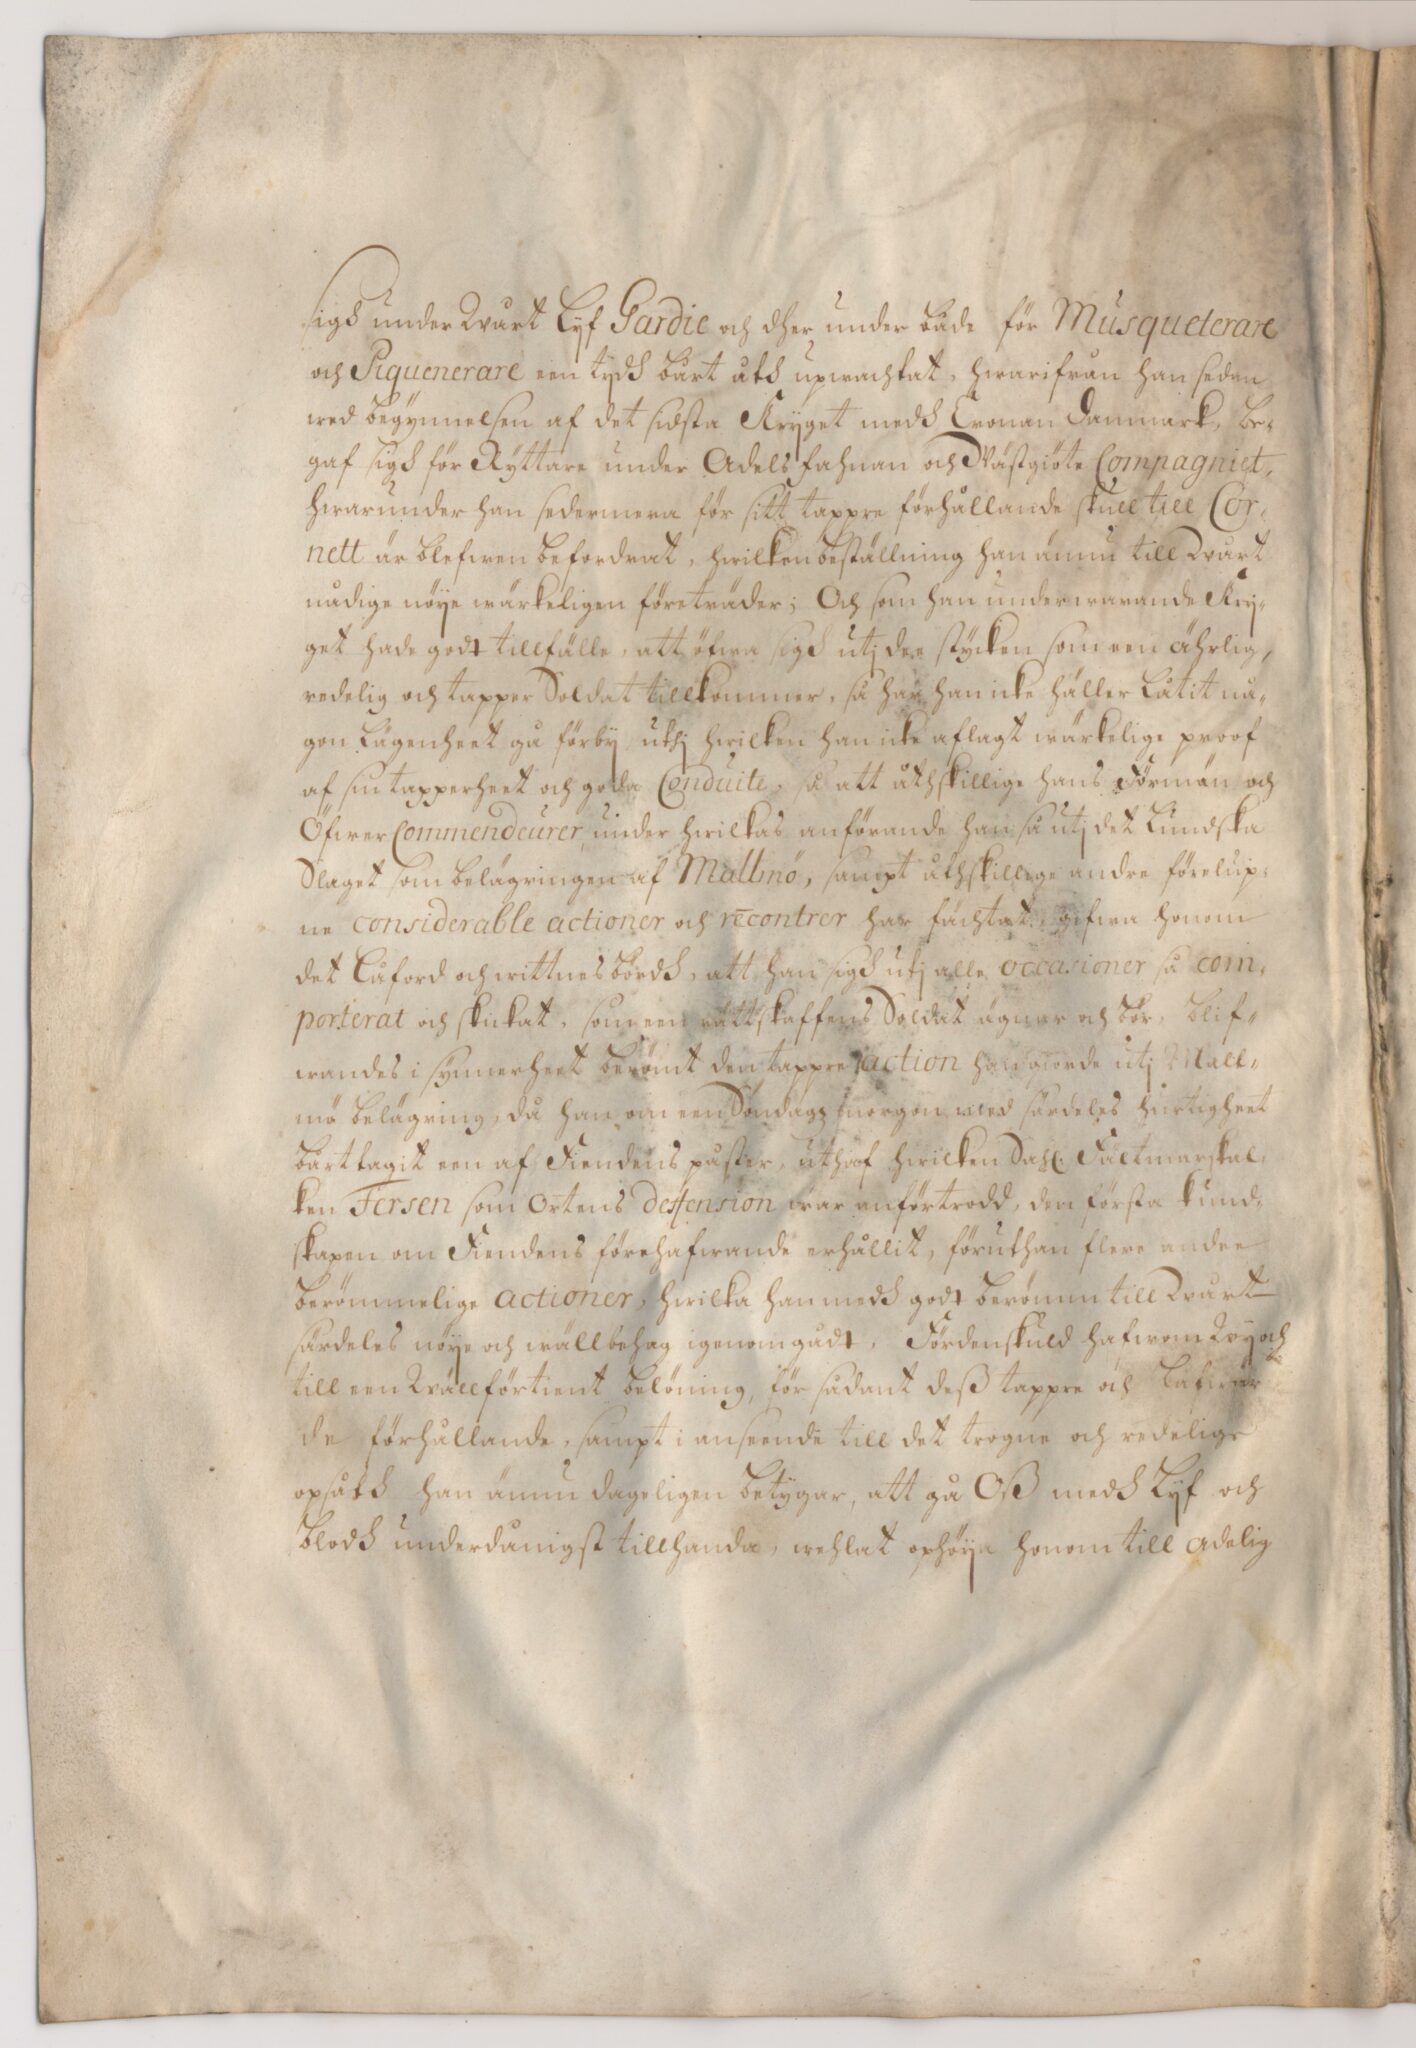 sigh under Wårt Lyf Gardie och dher under både för Musqueterare
och Piquenerare een tydh bårt åth upwachtat, hwarifrån han sedan
wed begynnelsen af det sidsta Kryget medh Cronan Danmark, be-
gaf sigh för Ryttare under Adels fahnan och Wästgiöte Compagniet,
hwarunder han sedermera för sitt tappre förhållande skull till Cor-
nett är blefwen befordrat, hwilken beställning han ännu till Wårt
nådige nöye wärkeligen företräder; Och som han under warande Kry-
get hade godt tillfälle, att öfwa sigh utj dee stycken som een ährlig,
redelig och tapper Soldat tillkommer, så har han icke häller låtit nå-
gon lägenheet gå förby uthj hwilken han icke aflagt wärkelige proof
af sin tapperheet och goda Conduite, så att åthskillige hans Förmän och
Öfwer Commendeurer, under hwilkas anförande han så utj det Lundska
Slaget som belägringen af Mallmö, sampt åthskillige andre förelup-
ne considerable actioner och recontrer har fächtat, gifwa honom
det Låford och wittnesbördh, att han sigh utj alle occasioner så com-
porterat och skickat, som een rättskaffens Soldat ägnar och bör, blif-
wandes i synnerheet berömt den tappre action han giorde utj Mall-
mö belägring, då han om een Söndags morgon med särdeles hurtigheet
bårttagit een af Fiendens påster, uthaf hwilken Sahl. Fältmarskal-
ken Fersen som Ortens deffension war anförtrodd, den första kund-
skapen om Fiendens förehafwande erhållit, föruthan flere andre
berömmelige actioner, hwilka han medh godt berömm till Wårt
särdeles nöye och wällbehag igenomgådt. Fördenskuld hafwom Wy och
till een Wällförtient belöning, för sådant dess tappre och låfwär-
de förhållande, sampt i anseende till det trogne och redelige
opsåth han ännu dageligen betygar, att gå Oss medh Lyf och
blodh underdånigst tillhanda, wehlat ophöya honom till Adelig